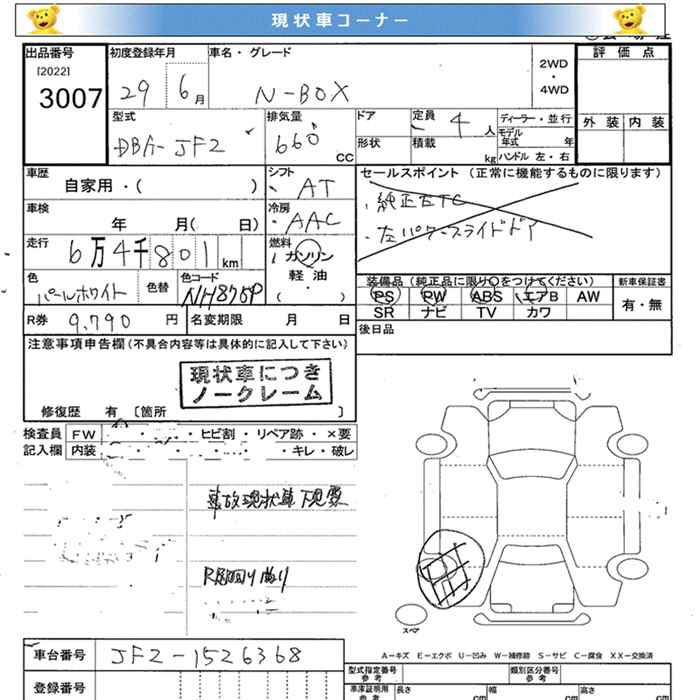 現状車コーナー
出品番号
[2022]
3007
初度登録年月
29 6月
車名・グレード
N-BOX
2WD
・
4WD
評価点
外装 内装
型式
DBA-JF2
排気量
660 CC
ドア
形状
定員
4 人
積載
kg
ディーラー・並行
モデル年式 年
ハンドル 左・右
車歴
自家用・( )
シフト
AT
セールスポイント (正常に機能するものに限ります)
・純正ETC
・左パワースライドドア
車検
年 月( 日)
冷房
AAC
走行
6万4千801km
燃料
ガソリン
軽油
( ・ )
色
パールホワイト
色替
色コード
NH875P
装備品 (純正品に限り○をつけてください)
PS PW ABS エアB AW
SR ナビ TV カワ
新車保証書
有・無
R券
9,790 円
名変期限 月 日
後日品
注意事項申告欄(不具合内容等は具体的に記入して下さい)
現状車につき
ノークレーム
修復歴 有 〔箇所 〕
検査員
記入欄
FW ・ ・ ヒビ割 ・ リペア跡 ・ ×要
内装 ・ キレ ・ 破レ
事故現状車下見要
スペア
A=キズ E=エクボ U=凹み W=補修跡 S=サビ C=腐食 XX=交換済
車台番号
JF2-1526368
登録番号
型式指定番号
参考
類別区分番号
参考
車庫証明用
参考
長さ cm
幅 cm
高さ cm